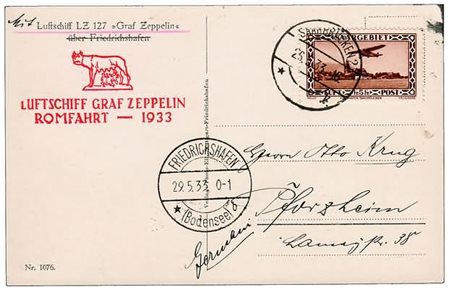 Mit Luftschiff LZ 127 »Graf Zeppelin«
über Friedrichshafen
LUFTSCHIFF GRAF ZEPPELIN
ROMFAHRT — 1933
SAARGEBIET
POST
FRIEDRICHSHAFEN
29.5.33. 0-1
(Bodensee)
Herrn Otto Krug
Pforzheim
Germany
Nr. 1076.